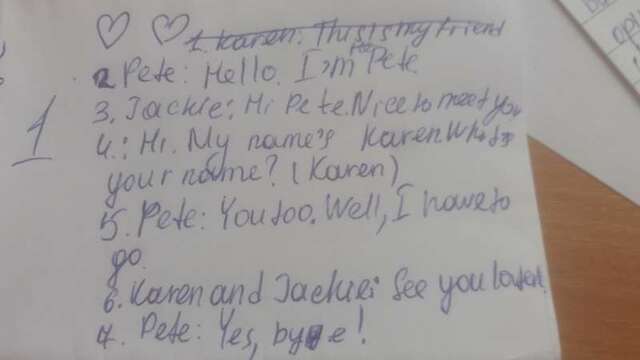 1
1. Karen: This is my friend
2. Pete: Hello. I'm Pete
3. Jackie: Hi Pete. Nice to meet you
4.: Hi. My name's Karen. What's
your name? (Karen)
5. Pete: You too. Well, I have to
go.
6. Karen and Jackie: See you later!
7. Pete: Yes, bye!